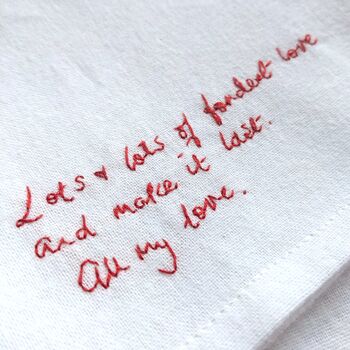 Lots & lots of fondest love
and make it last.
All my love.